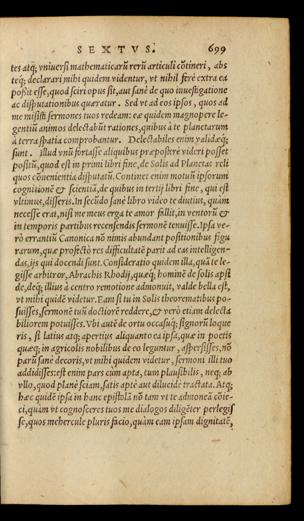 SEXTVS. 699
tes atq; vniuersi mathematicarū rerū articuli cōtineri, abs
teq; declarari mihi quidem videntur, vt nihil ferè extra ea
possit esse, quod sciri opus sit, aut sanè de quo inuestigatione
ac disputationibus quæratur. Sed vt ad eos ipsos, quos ad
me misisti sermones tuos redeam: eæ quidem magnopere le-
gentiū animos delectabūt rationes, quibus à te planetarum
à terra spatia comprobantur. Delectabiles enim validæq;
sunt. Illud vnū fortasse aliquibus præposterè videri posset
positū, quod est in primi libri fine, de Solis ad Planetas reli
quos cōuenientia disputatū. Continet enim motuū ipsorum
cognitionē & scientiā, de quibus in tertij libri fine, qui est
vltimus, disseris. In secūdo sanè libro video te diutius, quàm
necesse erat, nisi me meus erga te amor fallit, in ventorū &
in temporis partibus recensendis sermonē tenuisse. Ipsa ve-
rò errantiū Canonica nō nimis abundant positionibus figu
rarum, quæ profectò res difficultatē parit ad eas intelligen-
das, ijs qui docendi sunt. Consideratio quidem illa, quā te le-
gisse arbitror, Abrachis Rhodij, quæq; hominē de solis apsi
de, deq; illius à centro remotione admonuit, valde bella est,
vt mihi quidē videtur. Eam si tu in Solis theorematibus po-
suisses, sermonē tuū doctiorē reddere, & verò etiam delecta
biliorem potuisses. Vbi autē de ortu occasuq; signorū loque
ris, si latius atq; apertius aliquanto ea ipsa, quæ in poetis
quæq; in agricolis nobilibus de eo leguntur, aspersisses, nō
parū sanè decoris, vt mihi quidem videtur, sermoni illi tuo
addidisses: est enim pars cùm apta, tum plausibilis, neq; ab
vllo, quod planè sciam, satis aptè aut dilucidè tractata. Atq;
hæc quidē ipsa in hanc epistolā nō tam vt te admoneā cōie-
ci, quàm vt cognosceres tuos me dialogos diligēter perlegis
se, quos mehercule pluris facio, quàm eam ipsam dignitatē,